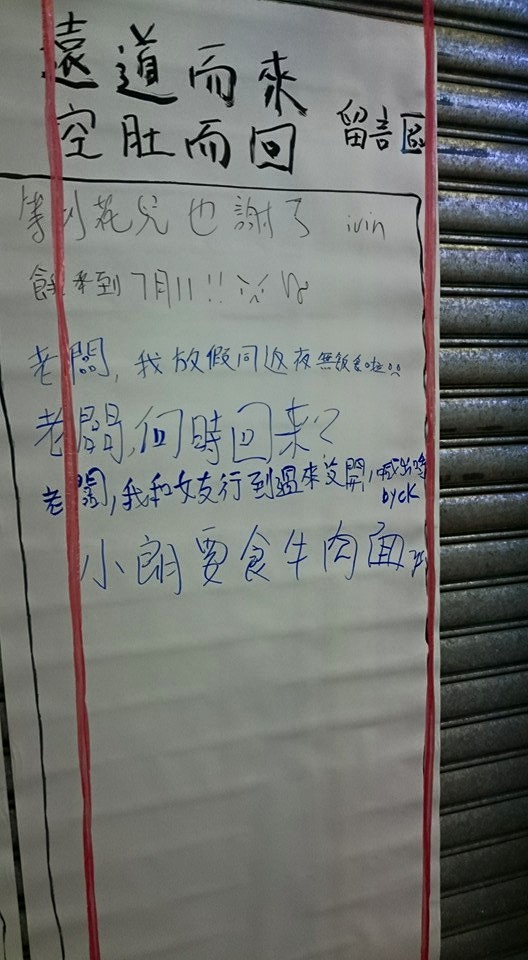 遠道而來
空肚而回 留言區
等到花兒也謝了 ivin
到7月11!!
老闆,我放假同返夜無飯食啦
老闆,何時回来?
老闆,我和女友行到過來沒開,喊出 by CK
小朗要食牛肉面